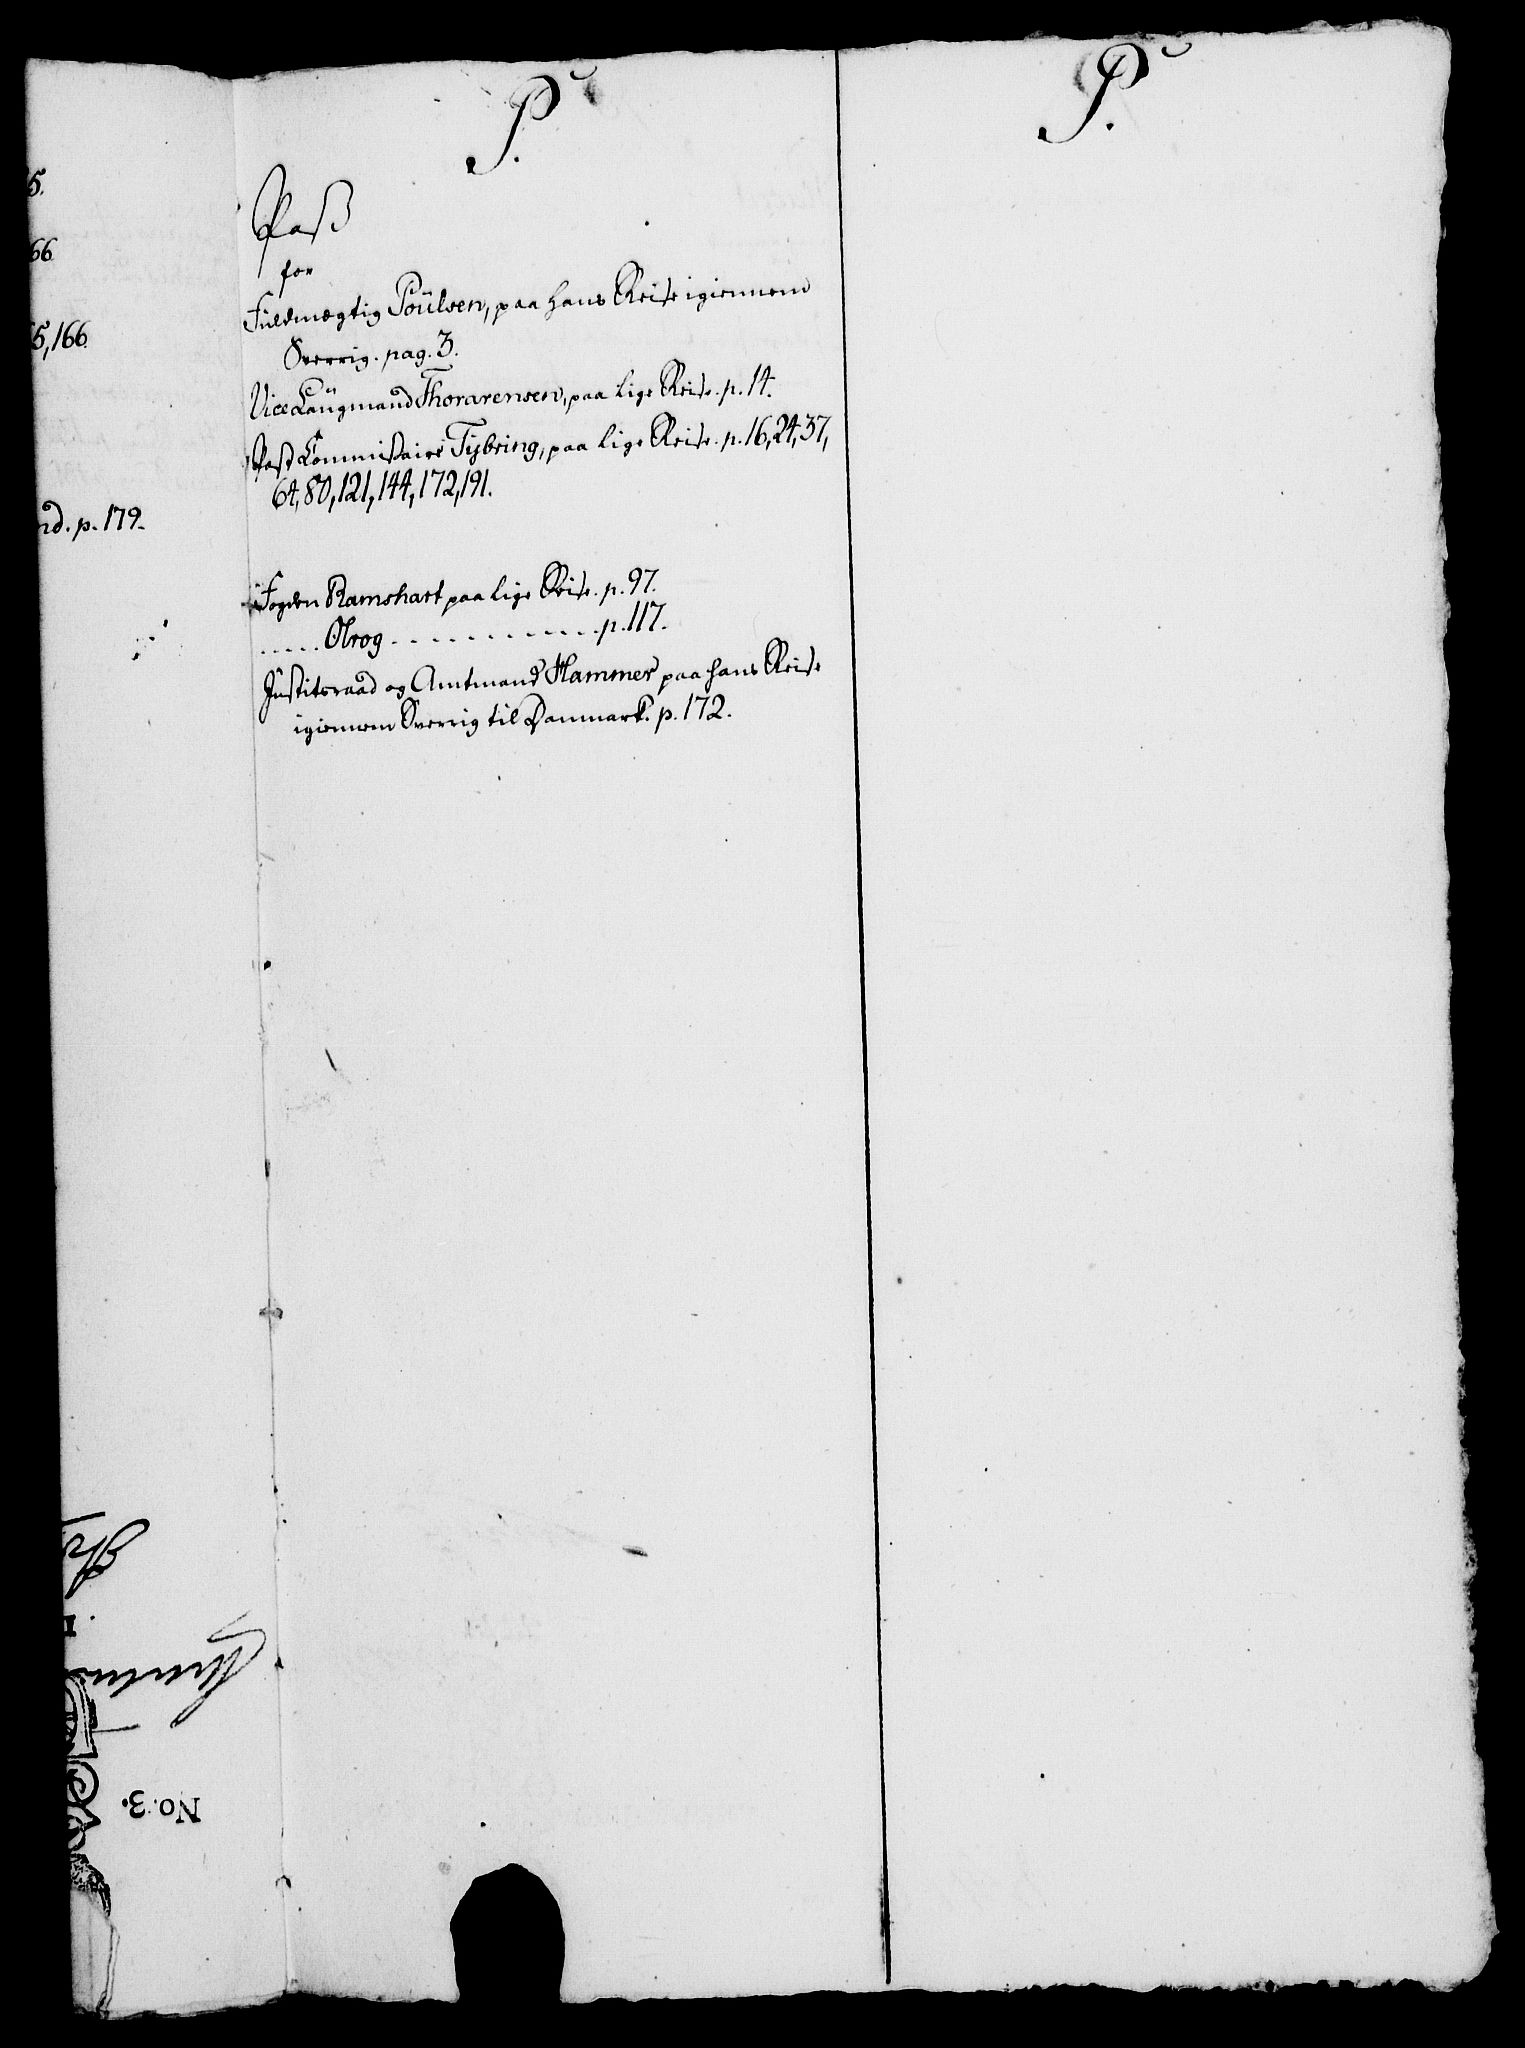 P.
P.
5.
66
5, 166.
nd. p. 179.
Pass
for
Fuldmegtig Poülsen, paa hans Reise igiennem
Sverrig. pag. 3.
Vice Laügmand Thorarensen, paa lige Reise. p. 14.
Post Commissaire Tybring, paa lige Reise. p. 16, 24, 37,
64, 80, 121, 144, 172, 191.
Fogden Ramshart paa lige Reise. p. 97.
..... Olrog ............ p. 117.
Justitsraad og Amtmand Hammer paa hans Reise
igiennem Sverrig til Danmark. p. 172.
No. 3.